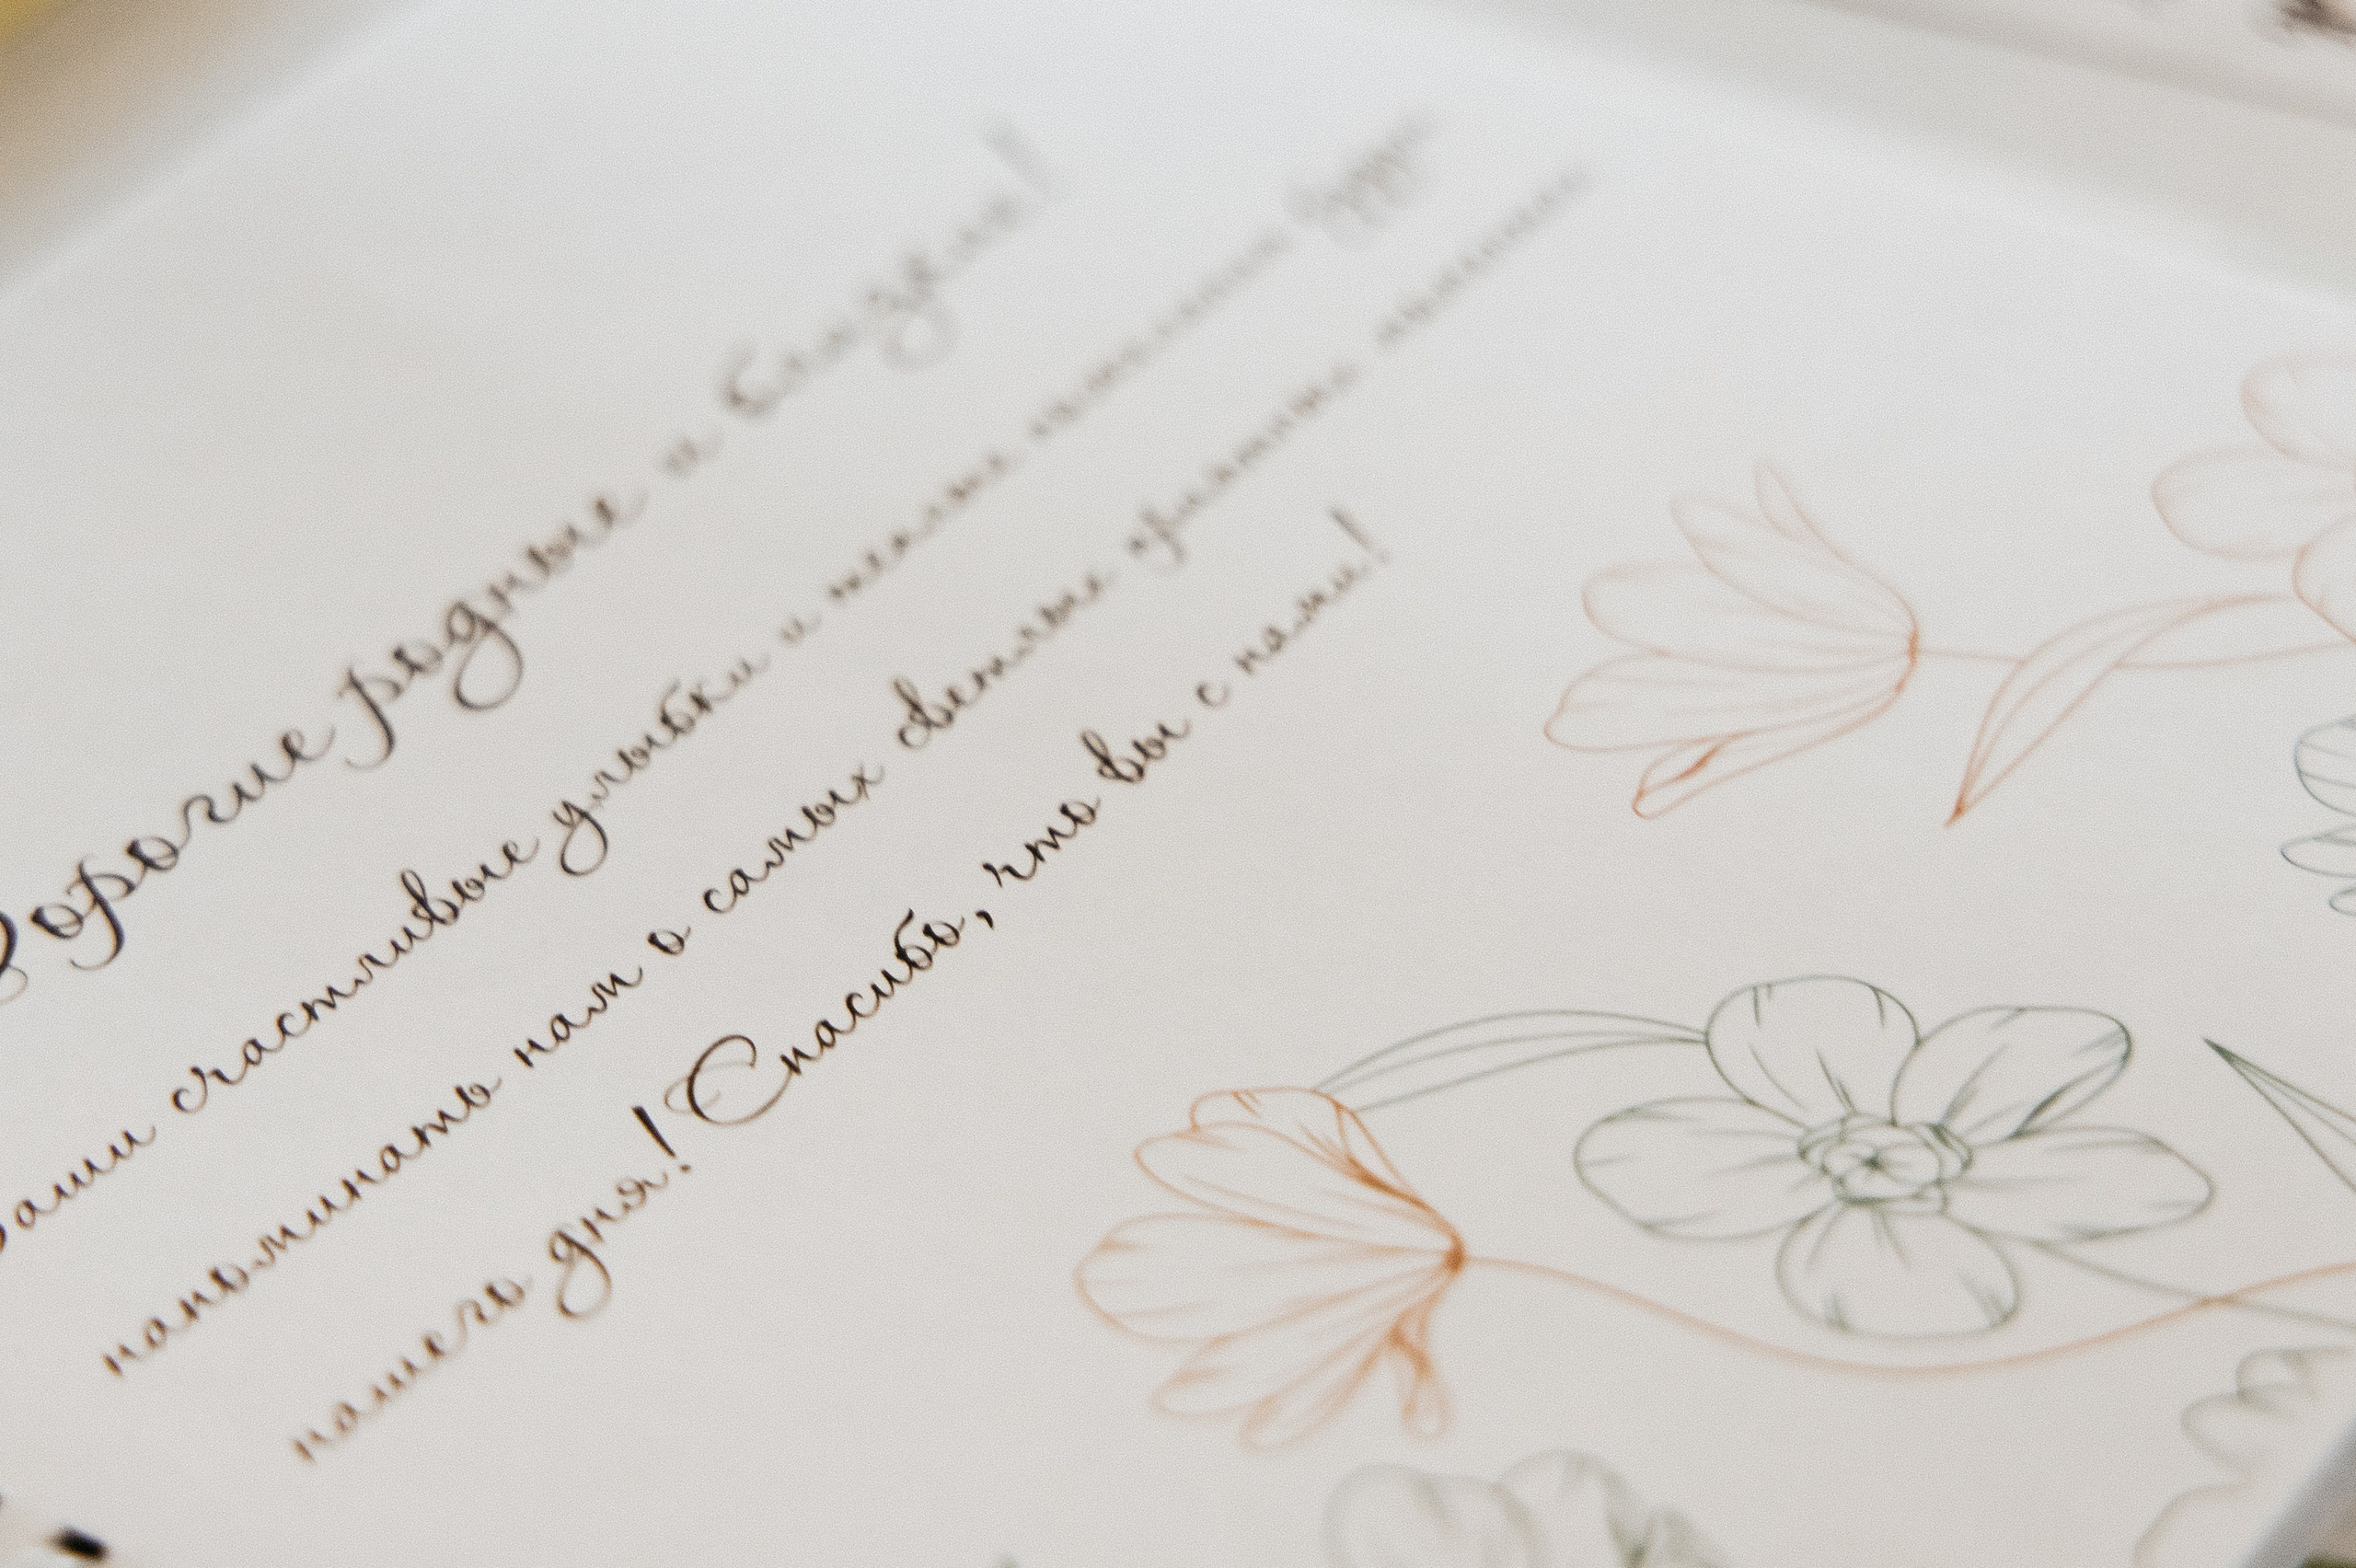 Дорогие родные и близкие!
Ваши счастливые улыбки и теплые пожелания будут
напоминать нам о самых светлых
нашего дня! Спасибо, что вы с нами!